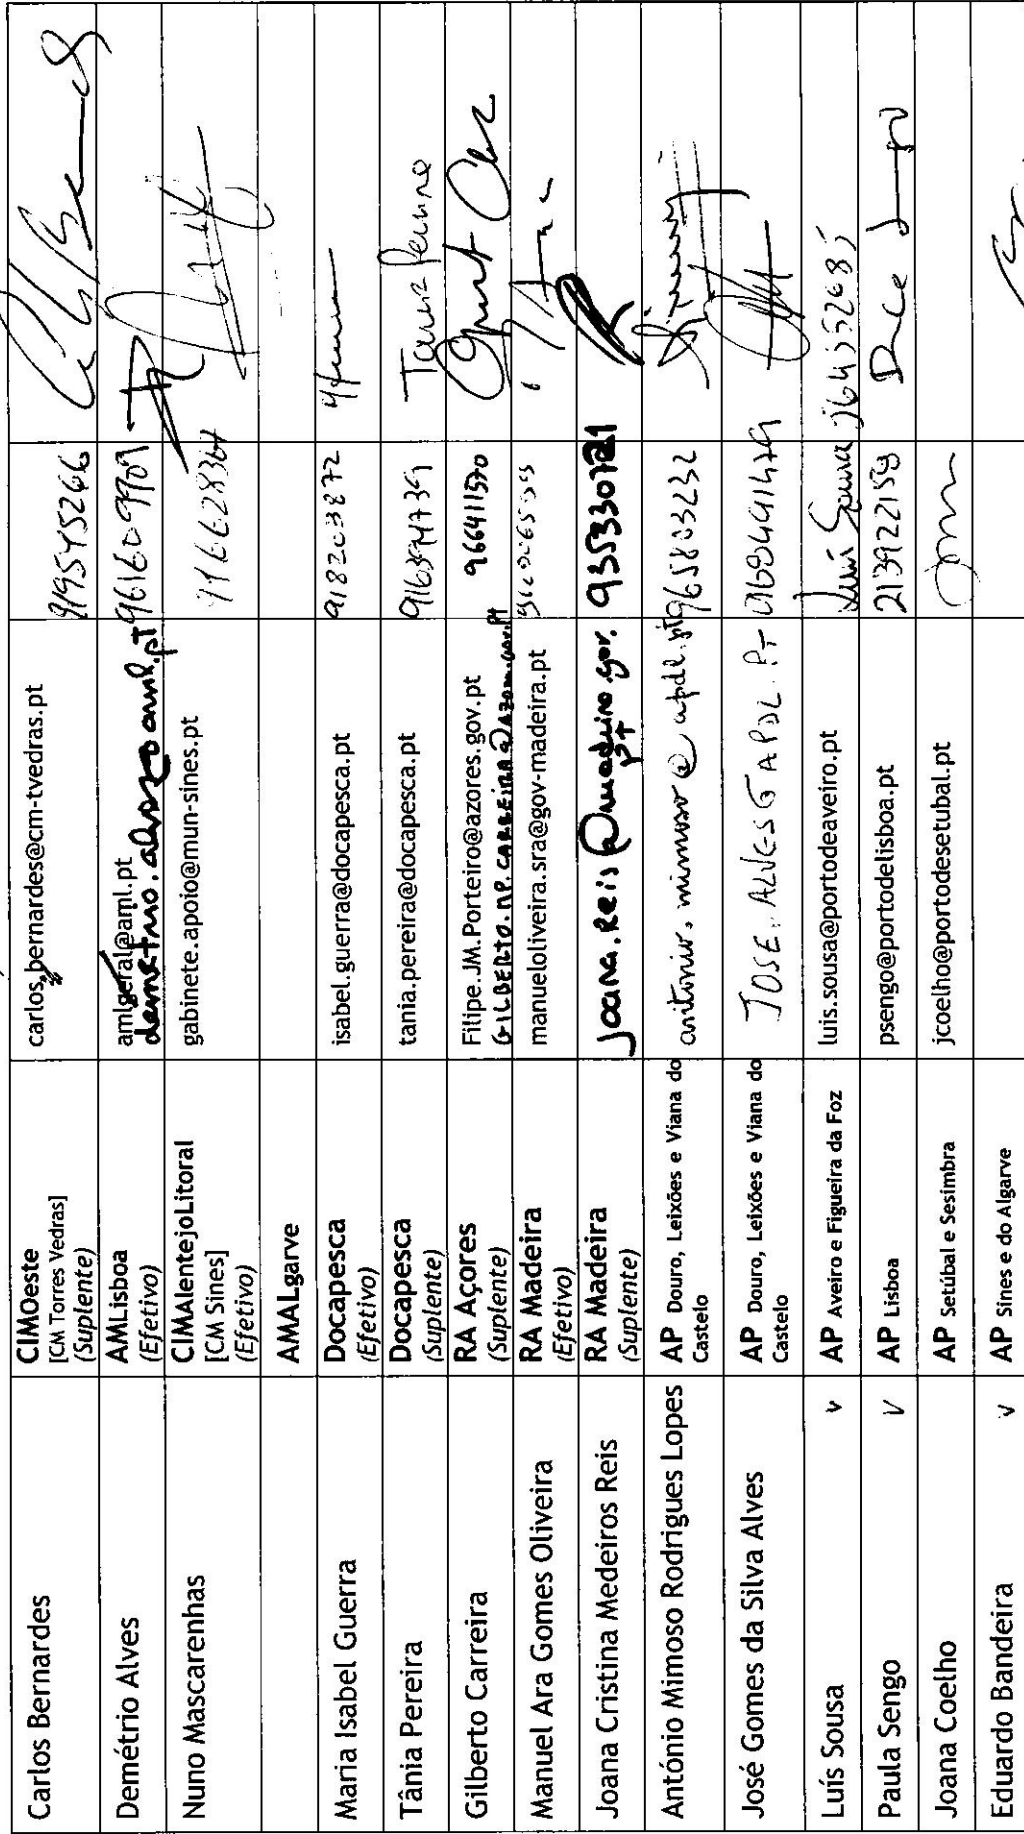 Carlos Bernardes
CIMOeste
[CM Torres Vedras]
(Suplente)
carlos.bernardes@cm-tvedras.pt
919545266
Demétrio Alves
AMLisboa
(Efetivo)
amlgeral@aml.pt
961609909
Nuno Mascarenhas
CIMAlentejoLitoral
[CM Sines]
(Efetivo)
gabinete.apoio@mun-sines.pt
AMALgarve
Maria Isabel Guerra
Docapesca
(Efetivo)
isabel.guerra@docapesca.pt
918203872
Tânia Pereira
Docapesca
(Suplente)
tania.pereira@docapesca.pt
Gilberto Carreira
RA Açores
(Suplente)
Filipe.JM.Porteiro@azores.gov.pt
GILBERTO.MP.CARREIRA@AZORES.GOV.PT
966411570
Manuel Ara Gomes Oliveira
RA Madeira
(Efetivo)
manueloliveira.sra@gov-madeira.pt
Joana Cristina Medeiros Reis
RA Madeira
(Suplente)
joana.reis@madeira.gov.
pt
935330721
António Mimoso Rodrigues Lopes
AP Douro, Leixões e Viana do
Castelo
antonio.mimoso@apdl.pt
965803232
José Gomes da Silva Alves
AP Douro, Leixões e Viana do
Castelo
JOSE.ALVES@APDL.PT
Luís Sousa v
AP Aveiro e Figueira da Foz
luis.sousa@portodeaveiro.pt
Luís Sousa
Paula Sengo v
AP Lisboa
psengo@portodelisboa.pt
213922158
Joana Coelho
AP Setúbal e Sesimbra
jcoelho@portodesetubal.pt
Eduardo Bandeira v
AP Sines e do Algarve